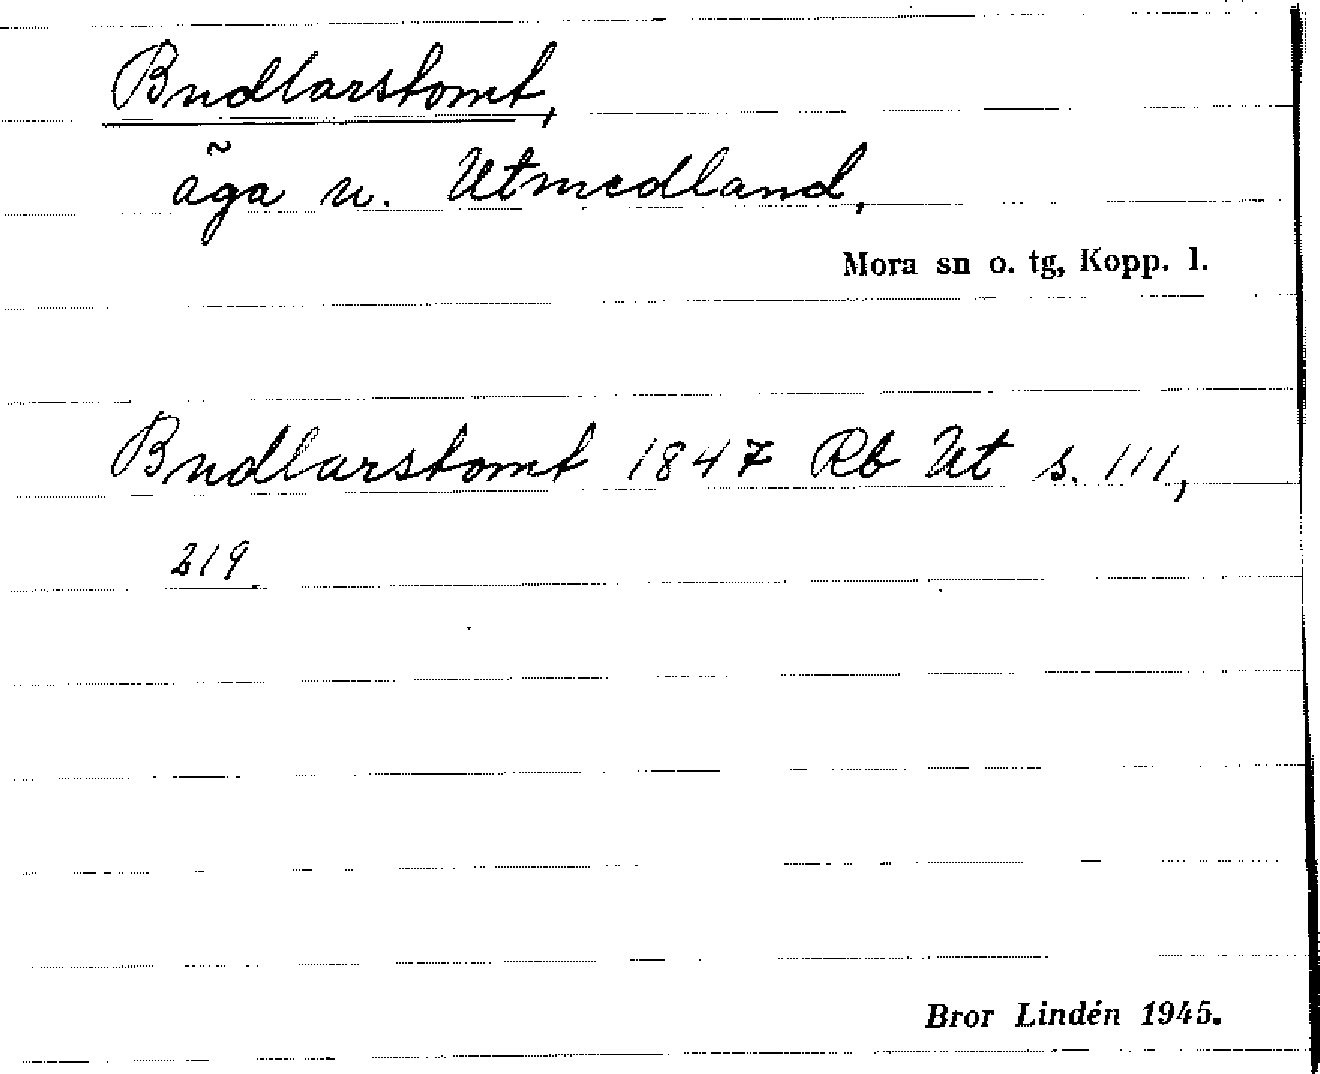 Budlarstomt,
äga u. Utmedland,
Mora sn o. tg, Kopp. l.
Budlarstomt 1847 Rb Ut s. 111,
219.
Bror Lindén 1945.